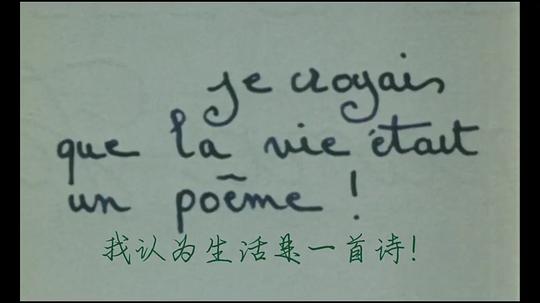 je croyais
que la vie était
un poême !
我认为生活是一首诗!